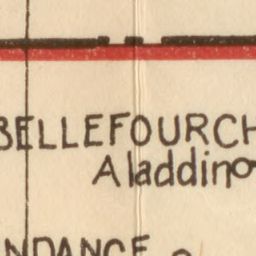 BELLEFOURCH
Aladdino
NDANCE